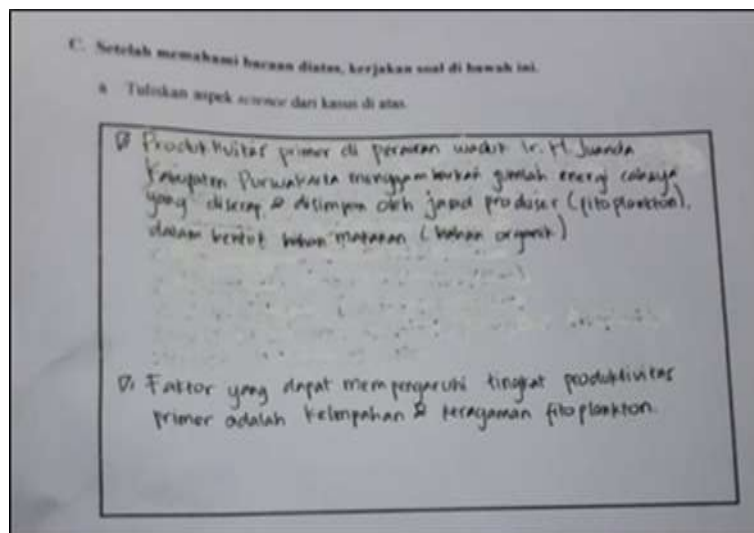 C. Setelah memahami bacaan diatas, kerjakan soal di bawah ini.
a Tuliskan aspek science dari kasus di atas.
Produktivitas primer di perairan waduk Ir. H. Juanda
Kabupaten Purwakarta menggambarkan jumlah energi cahaya
yang diserap & disimpan oleh jasad produser (fitoplankton).
dalam bentuk bahan makanan (bahan organik)
Faktor yang dapat mempengaruhi tingkat produktivitas
primer adalah kelimpahan & keragaman fitoplankton.